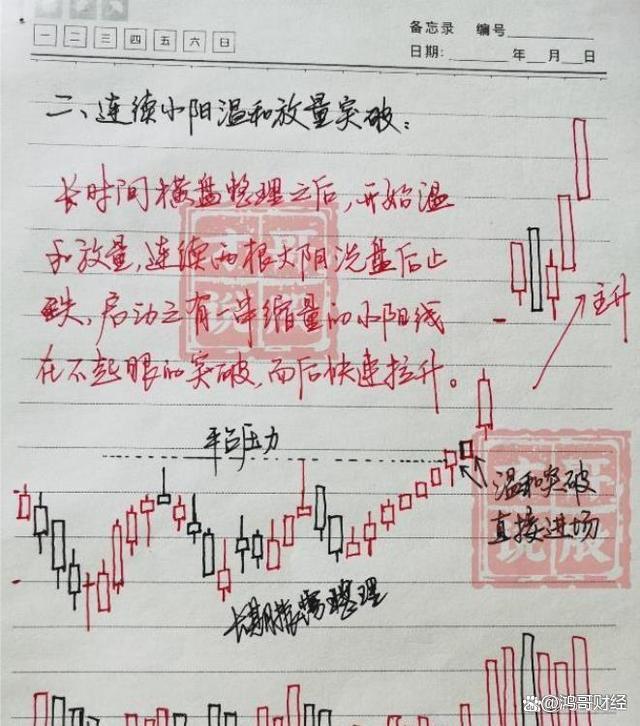 一 二 三 四 五 六 日
备忘录 编号
日期: 年 月 日
二、连续小阳温和放量突破:
长时间横盘整理之后,开始温
和放量,连续两根大阳洗盘后止
跌,启动之有一串缩量的小阳线
在不起眼的突破,而后快速拉升。
主升
平台压力
温和突破
直接进场
长期横盘整理
鸿哥财经